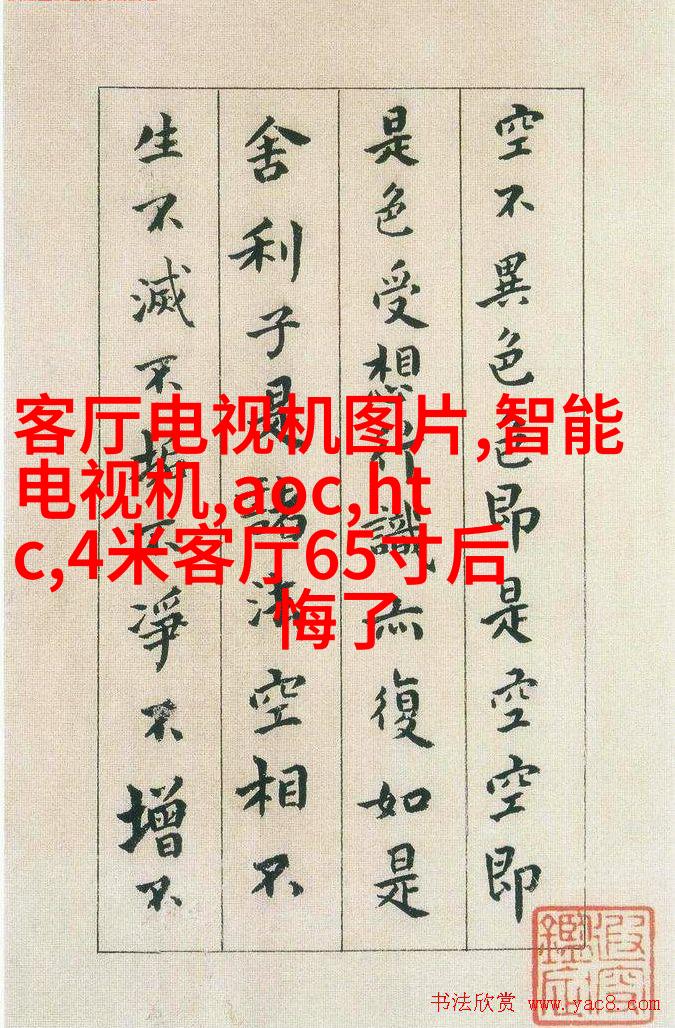 空不異色色即是空空即
是色受想行識亦復如是
舍利子是諸法空相不
生不滅不垢不淨不增不
客厅电视机图片,智能
电视机,aoc,ht
c,4米客厅65寸后
悔了
书法欣赏 www.yac8.com